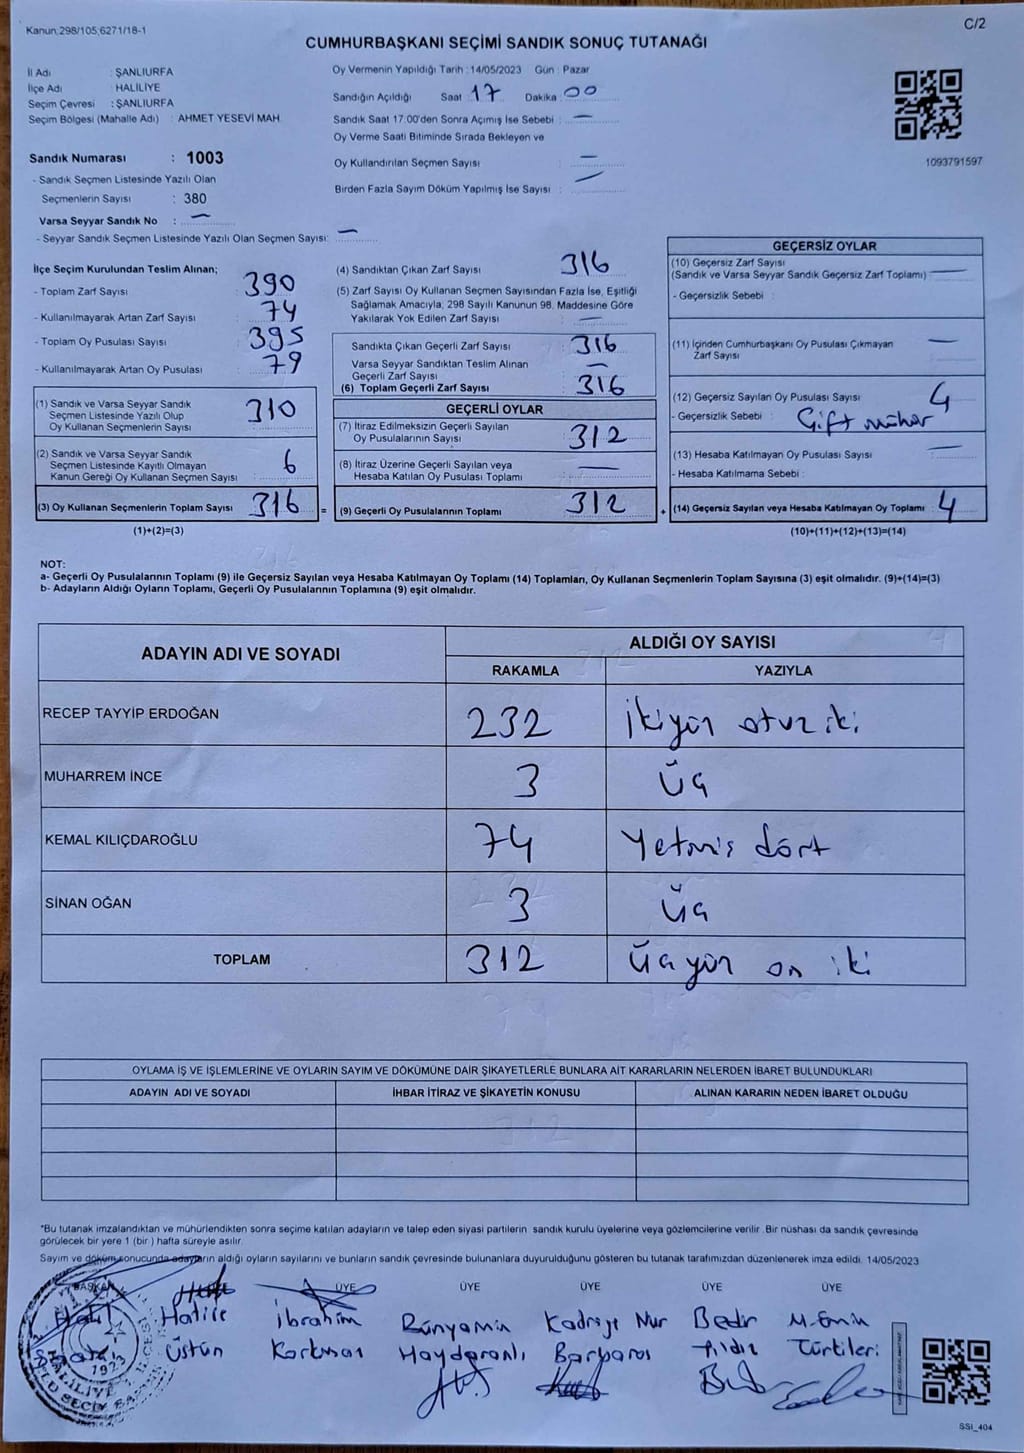 Kanun;298/105;6271/18-1
C/2
CUMHURBAŞKANI SEÇİMİ SANDIK SONUÇ TUTANAĞI
İl Adı : ŞANLIURFA
İlçe Adı : HALİLİYE
Seçim Çevresi : ŞANLIURFA
Seçim Bölgesi (Mahalle Adı) : AHMET YESEVİ MAH.
Oy Vermenin Yapıldığı Tarih : 14/05/2023 Gün : Pazar
Sandığın Açıldığı Saat : 17 Dakika : 00
Sandık Saat 17:00'den Sonra Açımış İse Sebebi : —
Oy Verme Saati Bitiminde Sırada Bekleyen ve
Oy Kullandırılan Seçmen Sayısı : —
Birden Fazla Sayım Döküm Yapılmış İse Sayısı : —
1093791597
Sandık Numarası : 1003
- Sandık Seçmen Listesinde Yazılı Olan
Seçmenlerin Sayısı : 380
Varsa Seyyar Sandık No : —
- Seyyar Sandık Seçmen Listesinde Yazılı Olan Seçmen Sayısı: —
İlçe Seçim Kurulundan Teslim Alınan;
- Toplam Zarf Sayısı : 390
- Kullanılmayarak Artan Zarf Sayısı : 74
- Toplam Oy Pusulası Sayısı : 395
- Kullanılmayarak Artan Oy Pusulası : 79
(1) Sandık ve Varsa Seyyar Sandık
Seçmen Listesinde Yazılı Olup
Oy Kullanan Seçmenlerin Sayısı : 310
(2) Sandık ve Varsa Seyyar Sandık
Seçmen Listesinde Kayıtlı Olmayan
Kanun Gereği Oy Kullanan Seçmen Sayısı : 6
(3) Oy Kullanan Seçmenlerin Toplam Sayısı : 316 =
(1)+(2)=(3)
(4) Sandıktan Çıkan Zarf Sayısı : 316
(5) Zarf Sayısı Oy Kullanan Seçmen Sayısından Fazla İse, Eşitliği
Sağlamak Amacıyla; 298 Sayılı Kanunun 98. Maddesine Göre
Yakılarak Yok Edilen Zarf Sayısı : —
Sandıkta Çıkan Geçerli Zarf Sayısı : 316
Varsa Seyyar Sandıktan Teslim Alınan
Geçerli Zarf Sayısı : —
(6) Toplam Geçerli Zarf Sayısı : 316
GEÇERLİ OYLAR
(7) İtiraz Edilmeksizin Geçerli Sayılan
Oy Pusulalarının Sayısı : 312
(8) İtiraz Üzerine Geçerli Sayılan veya
Hesaba Katılan Oy Pusulası Toplamı : —
(9) Geçerli Oy Pusulalarının Toplamı : 312 +
GEÇERSİZ OYLAR
(10) Geçersiz Zarf Sayısı
(Sandık ve Varsa Seyyar Sandık Geçersiz Zarf Toplamı) : —
- Geçersizlik Sebebi :
(11) İçinden Cumhurbaşkanı Oy Pusulası Çıkmayan
Zarf Sayısı : —
(12) Geçersiz Sayılan Oy Pusulası Sayısı : 4
- Geçersizlik Sebebi : Çift mühür
(13) Hesaba Katılmayan Oy Pusulası Sayısı : —
- Hesaba Katılmama Sebebi :
(14) Geçersiz Sayılan veya Hesaba Katılmayan Oy Toplamı : 4
(10)+(11)+(12)+(13)=(14)
NOT:
a- Geçerli Oy Pusulalarının Toplamı (9) ile Geçersiz Sayılan veya Hesaba Katılmayan Oy Toplamı (14) Toplamları, Oy Kullanan Seçmenlerin Toplam Sayısına (3) eşit olmalıdır. (9)+(14)=(3)
b- Adayların Aldığı Oyların Toplamı, Geçerli Oy Pusulalarının Toplamına (9) eşit olmalıdır.
ADAYIN ADI VE SOYADI
ALDIĞI OY SAYISI
RAKAMLA YAZIYLA
RECEP TAYYİP ERDOĞAN 232 İkiyüz otuz iki
MUHARREM İNCE 3 Üç
KEMAL KILIÇDAROĞLU 74 Yetmiş dört
SİNAN OĞAN 3 Üç
TOPLAM 312 Üçyüz on iki
OYLAMA İŞ VE İŞLEMLERİNE VE OYLARIN SAYIM VE DÖKÜMÜNE DAİR ŞİKAYETLERLE BUNLARA AİT KARARLARIN NELERDEN İBARET BULUNDUKLARI
ADAYIN ADI VE SOYADI İHBAR İTİRAZ VE ŞİKAYETİN KONUSU ALINAN KARARIN NEDEN İBARET OLDUĞU
*Bu tutanak imzalandıktan ve mühürlendikten sonra seçime katılan adayların ve talep eden siyasi partilerin sandık kurulu üyelerine veya gözlemcilerine verilir. Bir nüshası da sandık çevresinde
görülecek bir yere 1 (bir ) hafta süreyle asılır.
Sayım ve döküm sonucunda adayların aldığı oyların sayılarını ve bunların sandık çevresinde bulunanlara duyurulduğunu gösteren bu tutanak tarafımızdan düzenlenerek imza edildi. 14/05/2023
BAŞKAN ÜYE ÜYE ÜYE ÜYE ÜYE
Hatice İbrahim Bünyamin Kadriye Nur Bedir M. Emin
Üstün Korkmaz Haydaranlı Barbaros Yıldız Türkileri
1923
HALİLİYE
SSI_404